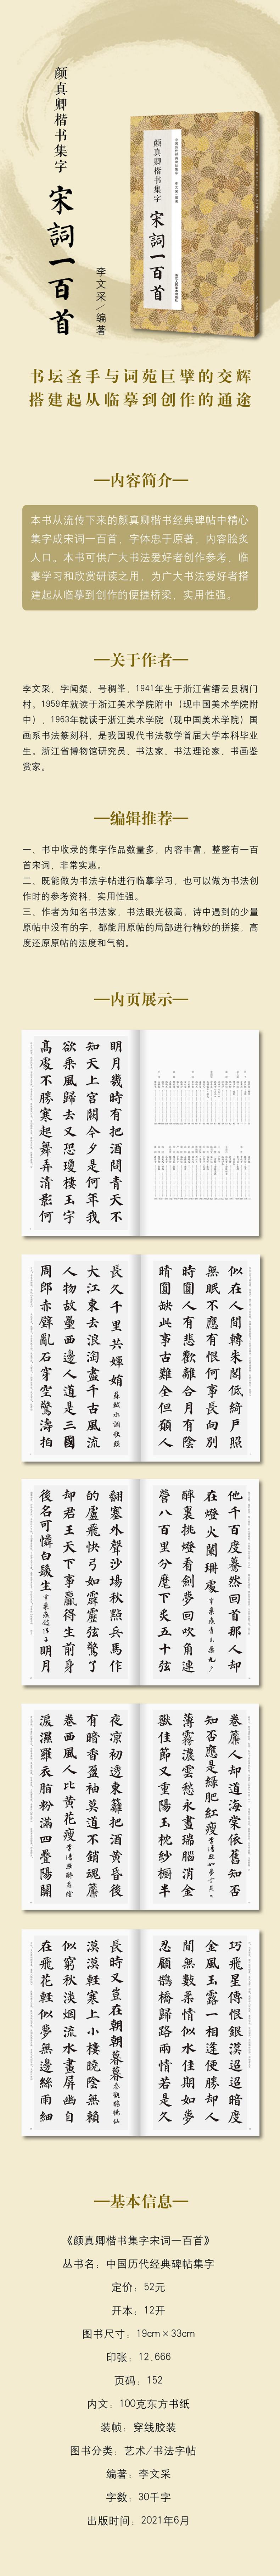 颜真卿楷书集字
宋詞一百首
李文采/编著
颜真卿楷书集字
宋詞一百首
书坛圣手与词苑巨擘的交辉
搭建起从临摹到创作的通途
内容简介
本书从流传下来的颜真卿楷书经典碑帖中精心
集字成宋词一百首，字体忠于原著，内容脍炙
人口。本书可供广大书法爱好者创作参考、临
摹学习和欣赏研读之用，为广大书法爱好者搭
建起从临摹到创作的便捷桥梁，实用性强。
关于作者
李文采，字闻粲，号稠峯，1941年生于浙江省缙云县稠门
村。1959年就读于浙江美术学院附中（现中国美术学院附
中），1963年就读于浙江美术学院（现中国美术学院）国
画系书法篆刻科，是我国现代书法教学首届大学本科毕业
生。浙江省博物馆研究员、书法家、书法理论家、书画鉴
赏家。
编辑推荐
一、书中收录的集字作品数量多，内容丰富，整整有一百
首宋词，非常实惠。
二、既能做为书法字帖进行临摹学习，也可以做为书法创
作时的参考资料，实用性强。
三、作者为知名书法家，书法眼光极高，诗中遇到的少量
原帖中没有的字，都能用原帖的局部进行精妙的拼接，高
度还原原帖的法度和气韵。
内页展示
明月幾時有把酒問青天不
知天上宮闕今夕是何年我
欲乘風歸去又恐瓊樓玉宇
高處不勝寒起舞弄清影何
似在人間轉朱閣低綺戶照
無眠不應有恨何事長向別
時圓人有悲歡離合月有陰
晴圓缺此事古難全但願人
長久千里共嬋娟
大江東去浪淘盡千古風流
人物故壘西邊人道是三國
周郎赤壁亂石穿空驚濤拍
他千百度驀然回首那人却
在燈火闌珊處
醉裏挑燈看劍夢回吹角連
營八百里分麾下炙五十弦
翻塞外聲沙場秋點兵馬作
的盧飛快弓如霹靂弦驚了
却君王天下事贏得生前身
後名可憐白髮生 明月
卷簾人却道海棠依舊知否
知否應是綠肥紅瘦
薄霧濃雲愁永晝瑞腦消金
獸佳節又重陽玉枕紗櫥半
夜凉初透東籬把酒黄昏後
有暗香盈袖莫道不銷魂簾
卷西風人比黄花瘦
淚濕羅衣脂粉滿四疊陽關
巧飛星傳恨銀漢迢迢暗度
金風玉露一相逢便勝却人
間無數柔情似水佳期如夢
忍顧鵲橋歸路兩情若是久
長時又豈在朝朝暮暮
漠漠輕寒上小樓曉陰無賴
似窮秋淡烟流水畫屏幽自
在飛花輕似夢無邊絲雨細
基本信息
《颜真卿楷书集字宋词一百首》
丛书名：中国历代经典碑帖集字
定价：52元
开本：12开
图书尺寸：19cm×33cm
印张：12.666
页码：152
内文：100克东方书纸
装帧：穿线胶装
图书分类：艺术/书法字帖
编著：李文采
字数：30千字
出版时间：2021年6月